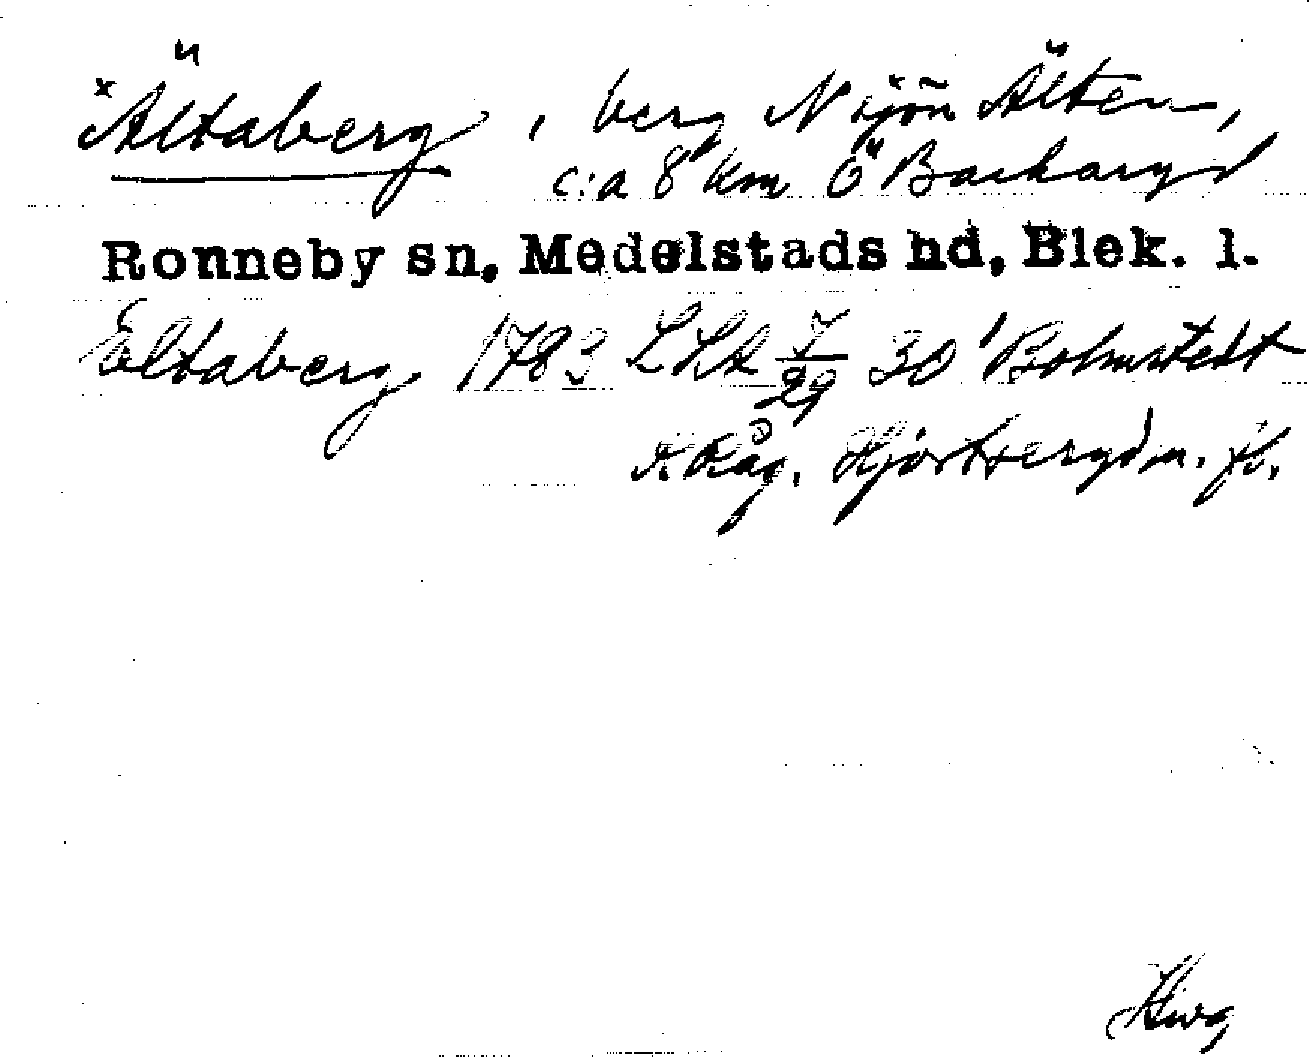 ˣÄltaberg, berg N sjön Älten,
c:a 8 km Ö Backaryd
Ronneby sn, Medelstads hd, Blek. l.
Eltaberg 1783 LSA 7/29 30 Bolmstedt
K Råg. Hjortseryd m. fl.
Hwg